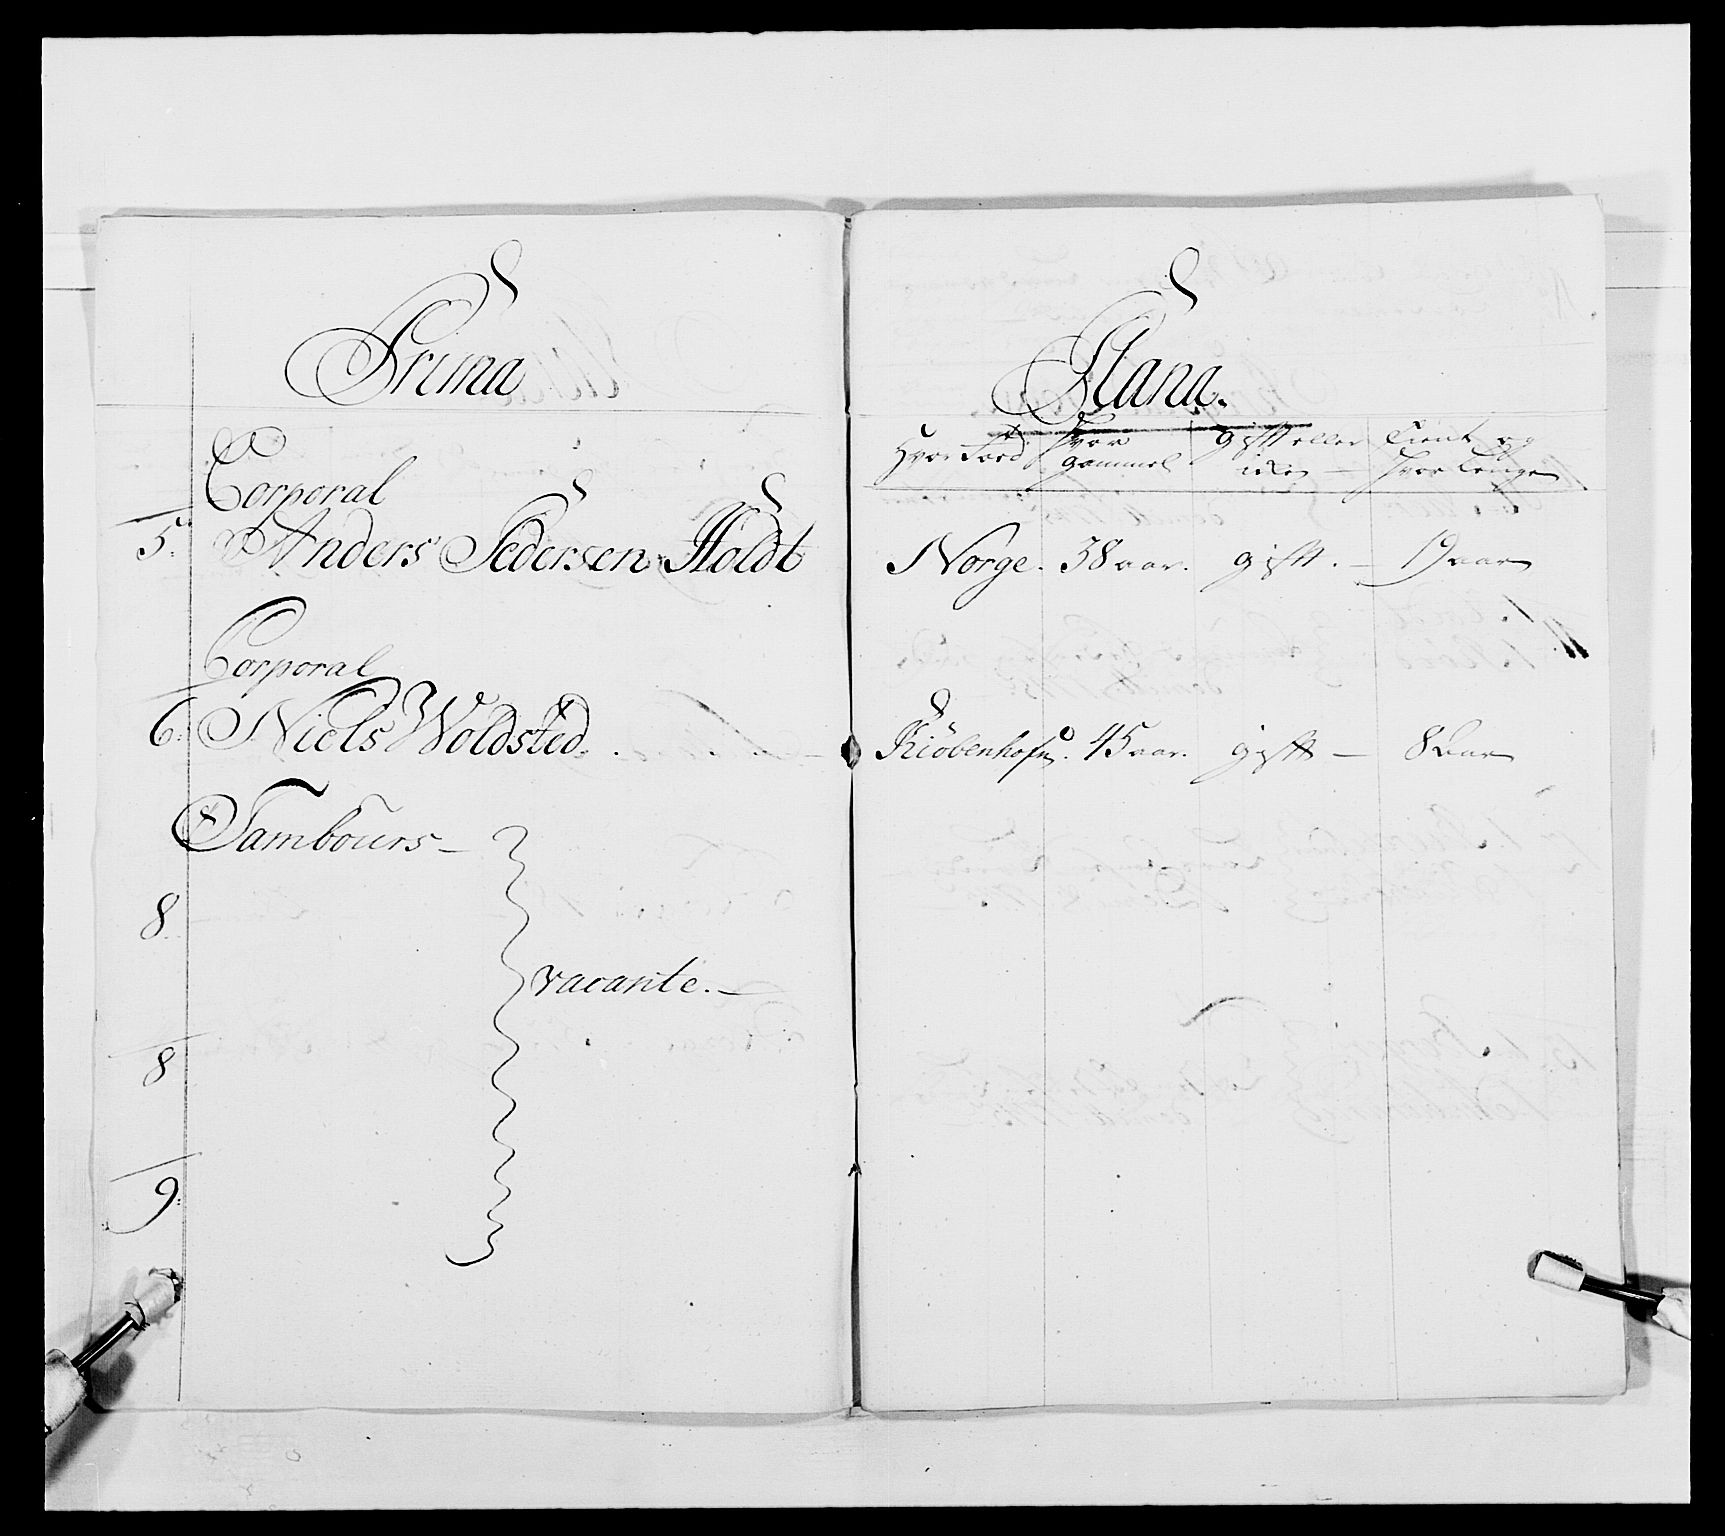 Prima
Corporal
5. Anders Pedersen Holdt
Corporal
6. Niels Woldsted.
Tambours —
8.
vacante. —
8
9.
Plana.
Hvor Fød
Hvor
gammel
gift eller
icke —
Tient og
Hvor lenge
Norge. 38 aar. gift. — 19 aar
Kiöbenhafn. 45 aar. gift — 8 aar